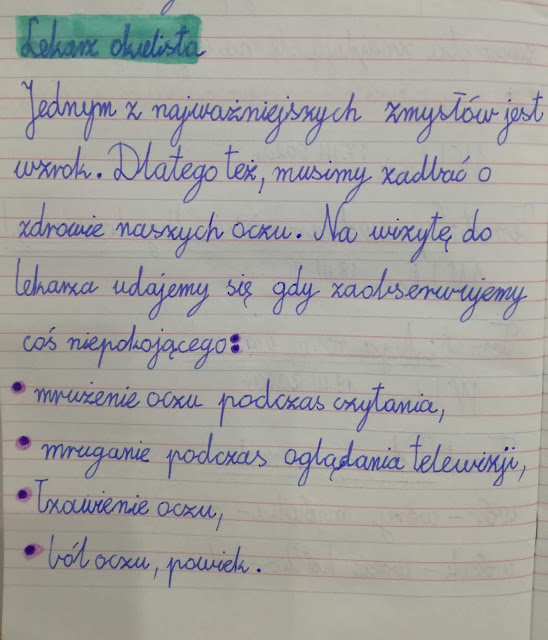 Lekarz okulista
Jednym z najważniejszych zmysłów jest
wzrok. Dlatego też, musimy zadbać o
zdrowie naszych oczu. Na wizytę do
lekarza udajemy się gdy zaobserwujemy
coś niepokojącego:
• mrużenie oczu podczas czytania,
• mruganie podczas oglądania telewizji,
• łzawienie oczu,
• ból oczu, powiek.